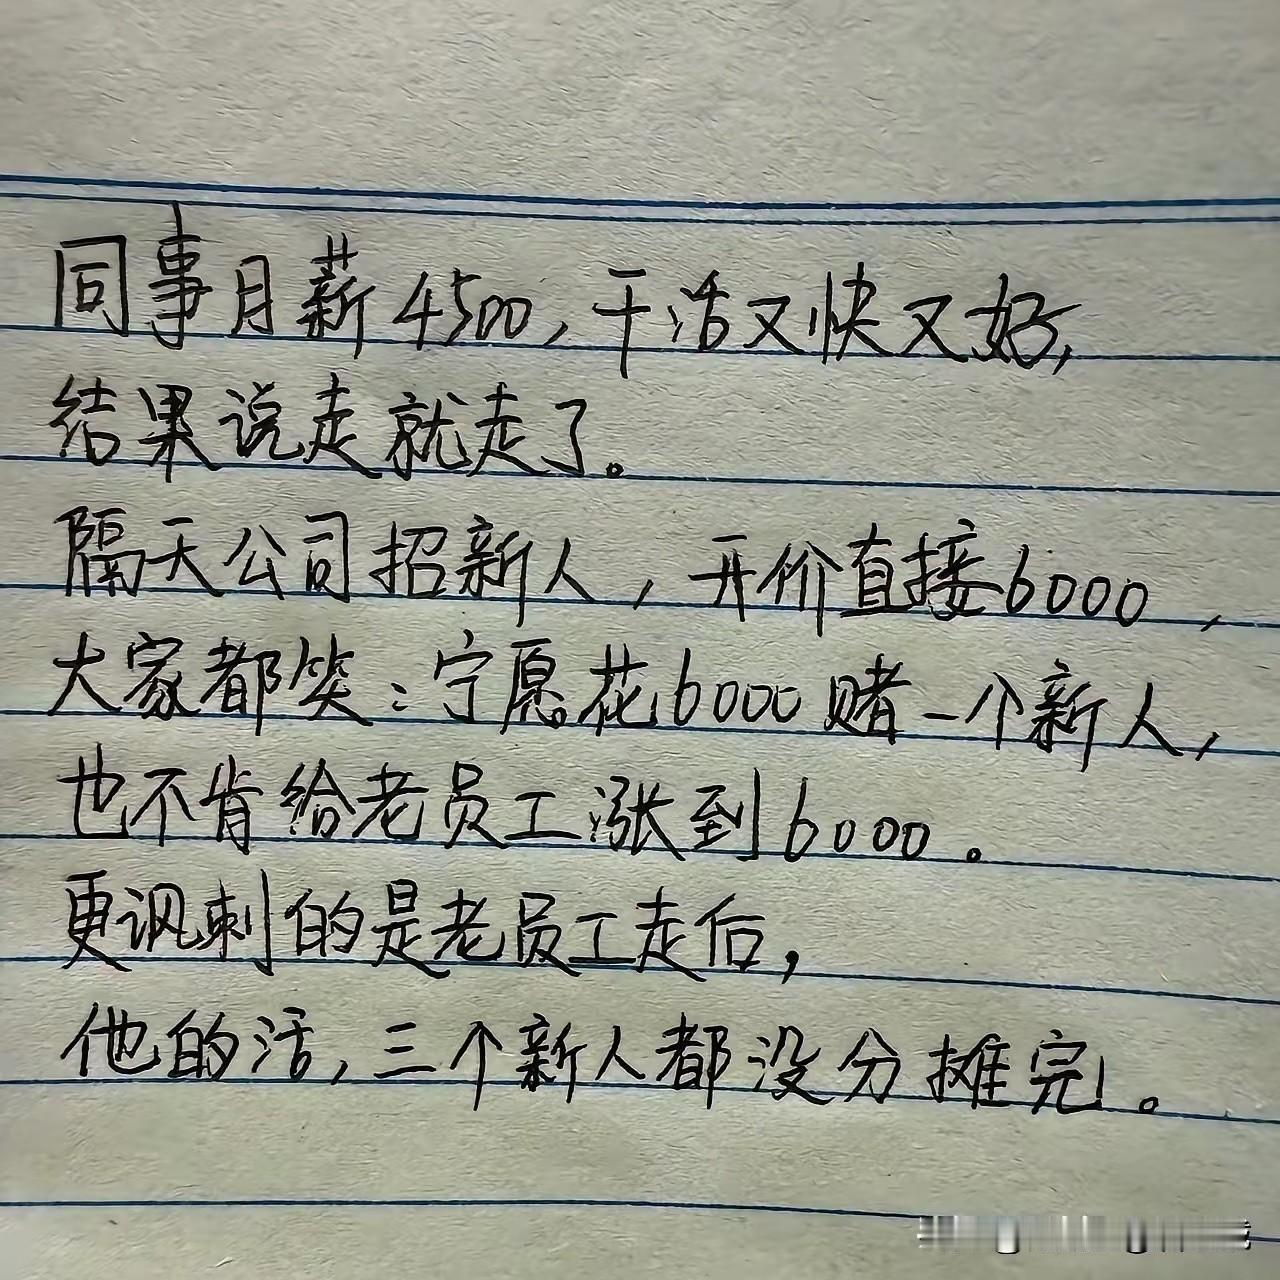 同事月薪4500,干活又快又好,
结果说走就走了。
隔天公司招新人,开价直接6000,
大家都笑:宁愿花6000赌一个新人,
也不肯给老员工涨到6000。
更讽刺的是老员工走后,
他的活,三个新人都没分摊完。